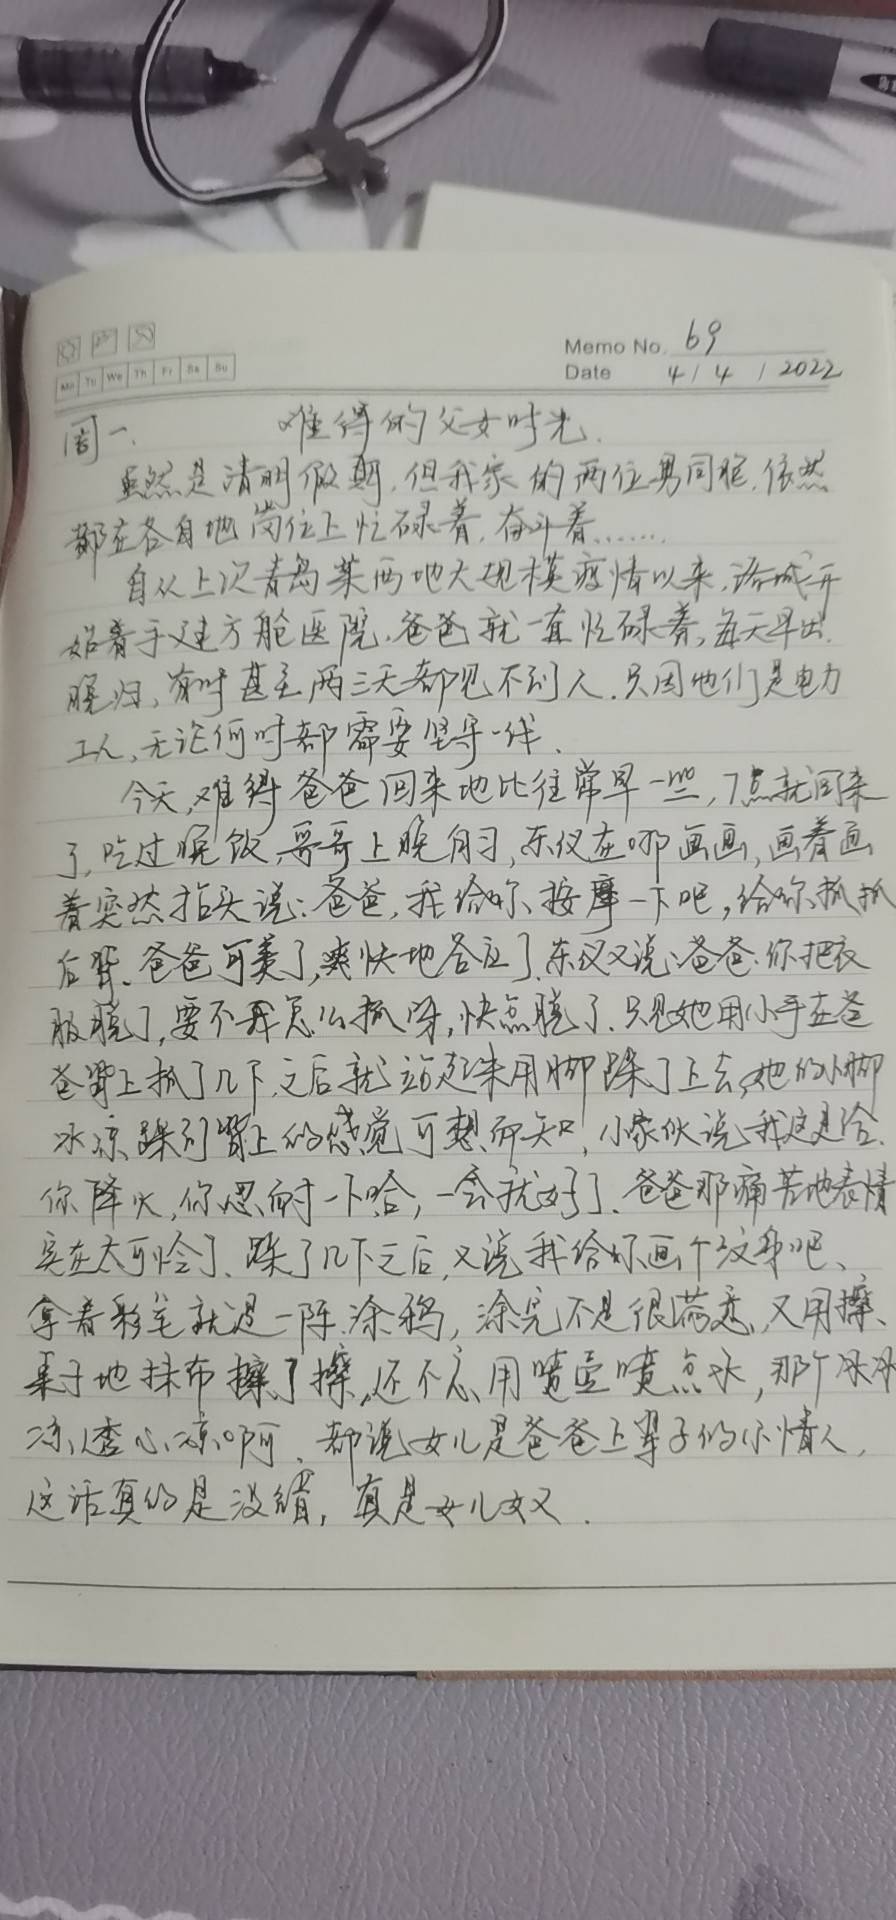 Memo No. 69
Mo Tu We Th Fr Sa Su
Date 4 / 4 / 2022
周一. 难得的父女时光.
虽然是清明假期,但我家的两位男同胞,依然
都在各自地岗位上忙碌着,奋斗着……
自从上次青岛莱西地大规模疫情以来,诸城开
始着手建方舱医院,爸爸就一直忙碌着,每天早出
晚归,有时甚至两三天都见不到人.只因他们是电力
工人,无论何时都需要坚守一线.
今天,难得爸爸回来地比往常早一些,7点就回来
了,吃过晚饭,哥哥上晚自习,东仪在哪画画,画着画
着突然抬头说:爸爸,我给你按摩一下吧,给你抓抓
后背.爸爸可美了,爽快地答应了.东仪又说:爸爸.你把衣
服脱了,要不我怎么抓呀,快点脱了.只见她用小手在爸
爸背上抓了几下,之后就站起来用脚踩了上去,她的小脚
冰凉踩到背上的感觉可想而知,小家伙说我这是给
你降火,你忍耐一下哈,一会就好了.爸爸那痛苦地表情
实在太可怜了.踩了几下之后,又说我给你画个纹身吧、
拿着彩笔就是一阵涂鸦,涂完不是很满意,又用擦
桌子地抹布擦了擦,还不忘用喷壶喷点水,那个冰冰
凉,透心凉啊.都说女儿是爸爸上辈子的小情人,
这话真的是没错,真是女儿奴.